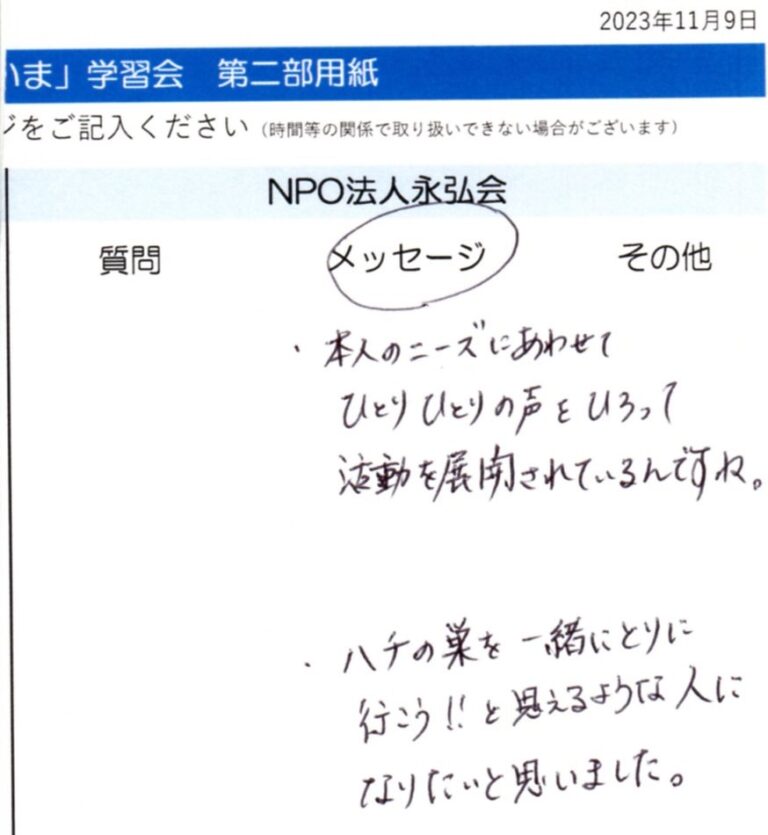 2023年11月9日
いま」学習会 第二部用紙
ジをご記入ください（時間等の関係で取り扱いできない場合がございます）
NPO法人永弘会
質問 メッセージ その他
・本人のニーズにあわせて
ひとりひとりの声をひろって
活動を展開されているんですね。
・ハチの巣を一緒にとりに
行こう!!と思えるような人に
なりたいと思いました。